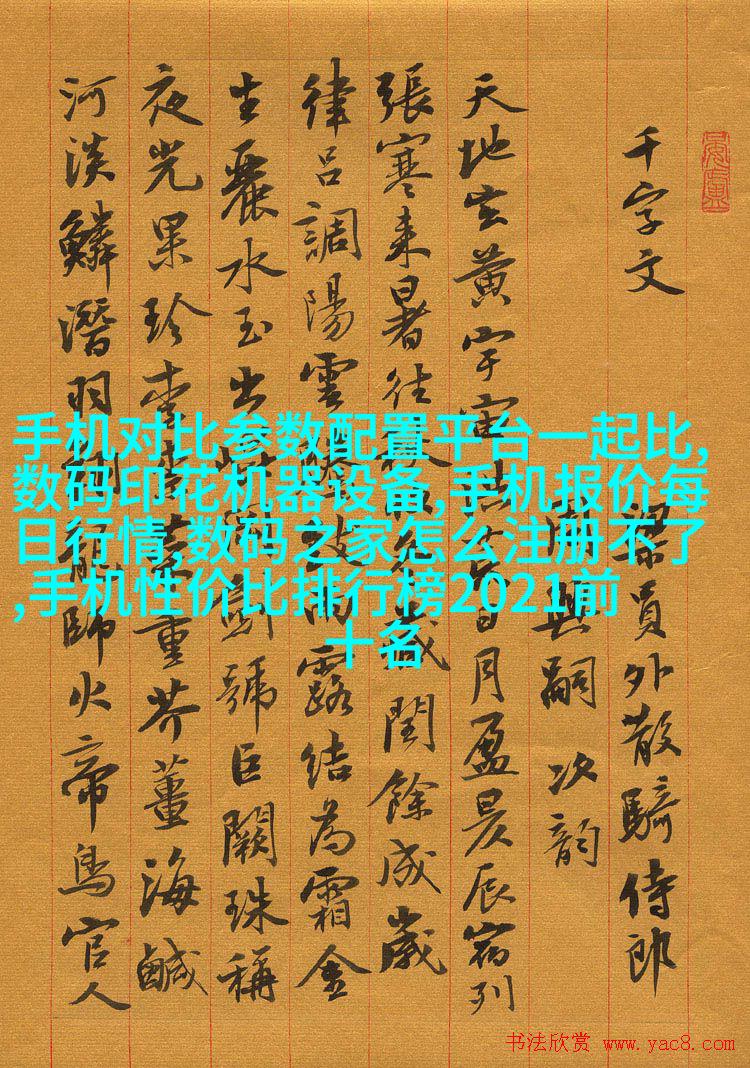 千字文
梁員外散騎侍郎
周興嗣次韵
天地玄黄宇宙洪荒日月盈昃辰宿列
張寒来暑往秋收冬藏閏餘成歲
律吕調陽雲騰致雨露结為霜金
生麗水玉出崑岡劍號巨闕珠稱
夜光果珍李柰菜重芥薑海鹹
河淡鱗潛羽翔龍師火帝鳥官人
手机对比参数配置平台一起比,
数码印花机器设备,手机报价每
日行情,数码之家怎么注册不了
,手机性价比排行榜2021前
十名
书法欣赏 www.yac8.com